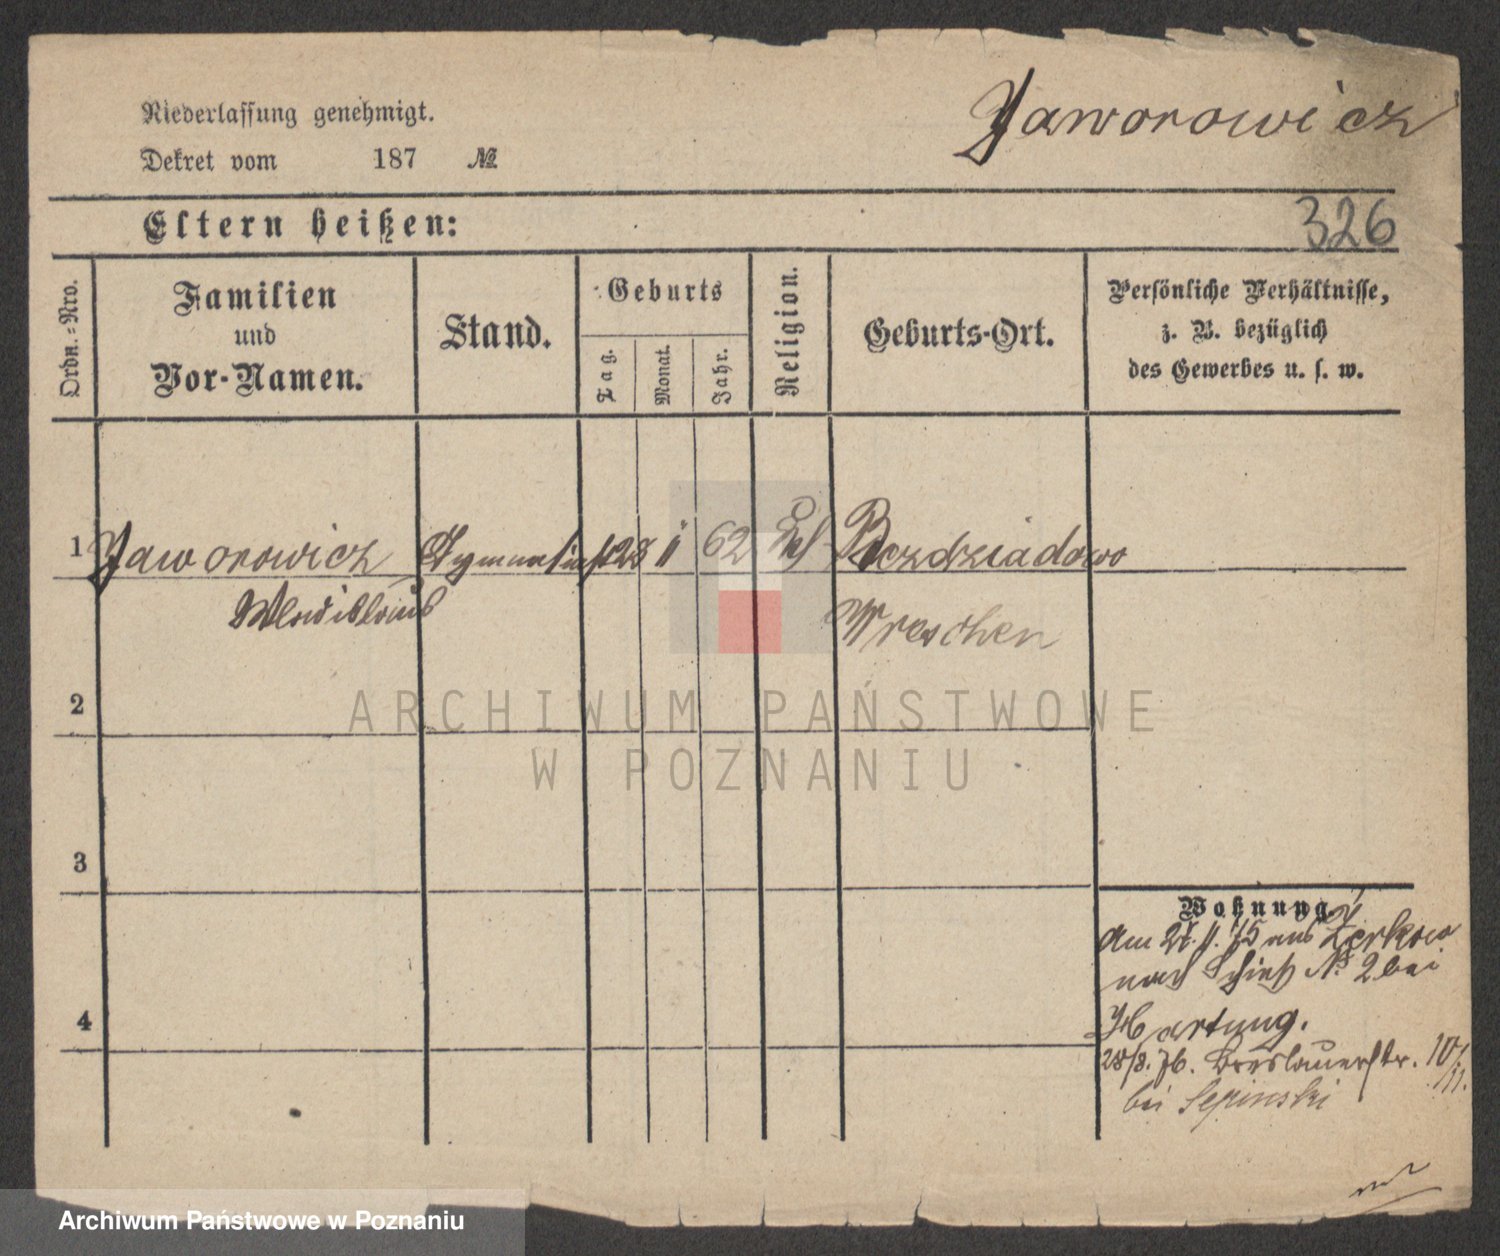 Niederlassung genehmigt.
Jaworowicz
Dekret vom 187 №
Eltern heißen:
326
Ordn.-Nro.
Familien
und
Vor-Namen.
Stand.
Geburts
Tag.
Monat.
Jahr.
Religion.
Geburts-Ort.
Persönliche Verhältnisse,
z. B. bezüglich
des Gewerbes u. s. w.
1 Jaworowicz Gymnasiast 28 11 62 Bozdziadowo
Wladislaus
Wreschen
2
ARCHIWUM PAŃSTWOWE
W POZNANIU
3
Wohnung.
Am 27. 11. 75 aus Zerkow
nach Schieß No. 2 bei
4
Hartung.
28/8. 76. Breslauerstr. 10/11.
bei Sepinski
Archiwum Państwowe w Poznaniu